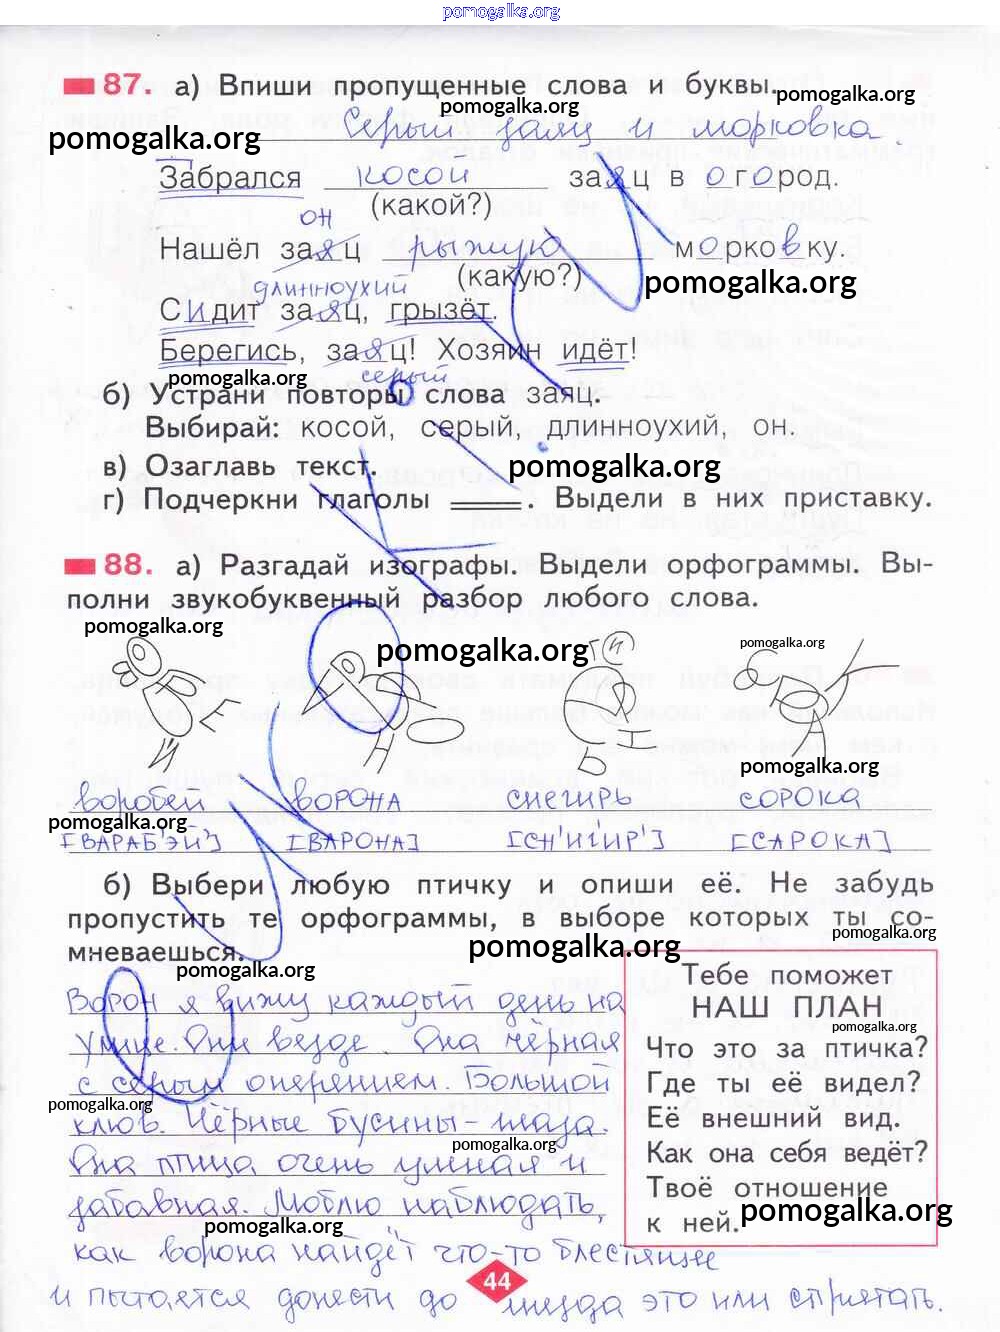 pomogalka.org
87. а) Впиши пропущенные слова и буквы.
pomogalka.org
pomogalka.org
pomogalka.org
Серый заяц и морковка.
Забрался косой заяц в огород.
(какой?)
он
Нашёл заяц рыжую морковку.
(какую?)
pomogalka.org
длинноухий
Сидит заяц, грызёт.
Берегись, заяц! Хозяин идёт!
pomogalka.org
серый
б) Устрани повторы слова заяц.
Выбирай: косой, серый, длинноухий, он.
в) Озаглавь текст.
pomogalka.org
г) Подчеркни глаголы ____. Выдели в них приставку.
88. а) Разгадай изографы. Выдели орфограммы. Вы-
полни звукобуквенный разбор любого слова.
pomogalka.org
pomogalka.org
pomogalka.org
pomogalka.org
воробей ворона снегирь сорока
pomogalka.org
[ВАРАБ'ЭЙ'] [ВАРОНА] [СН'ИГ'ИР'] [САРОКА]
б) Выбери любую птичку и опиши её. Не забудь
пропустить те орфограммы, в выборе которых ты со-
мневаешься.
pomogalka.org
pomogalka.org
pomogalka.org
Тебе поможет
НАШ ПЛАН
pomogalka.org
Что это за птичка?
Где ты её видел?
Её внешний вид.
Как она себя ведёт?
Твоё отношение
к ней.
pomogalka.org
Ворон я вижу каждый день на
улице. Они везде. Она чёрная
с серым оперением. Большой
pomogalka.org
клюв. Чёрные бусины - глаза.
pomogalka.org
Она птица очень умная и
забавная. Люблю наблюдать,
pomogalka.org
как ворона найдёт что-то блестящее
и пытается донести до гнезда это или спрятать.
44